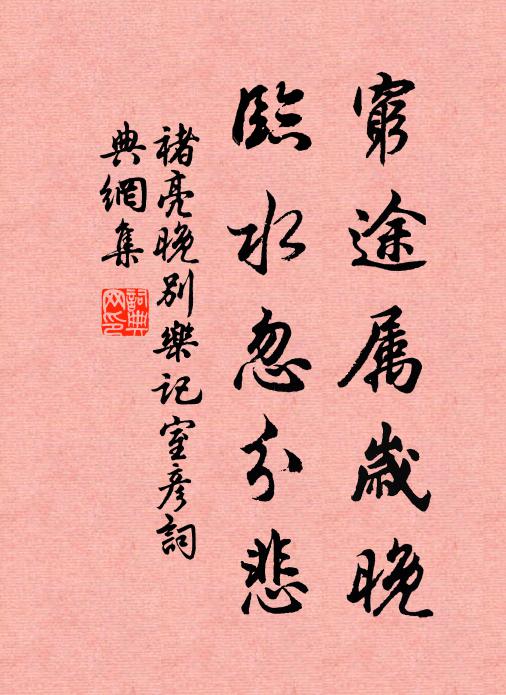 窮途属歲晚
臨水忽分悲
褚亮晚别樂記室彦詞
典網集
詞典
网印